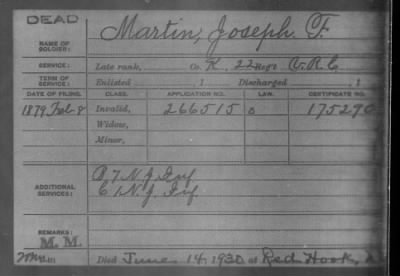 DEAD
NAME OF SOLDIER: Martin, Joseph F.
SERVICE: Late rank, Co. K, 22 Reg't V.R.C
TERM OF SERVICE: Enlisted 1 Discharged , 1
DATE OF FILING. CLASS. APPLICATION NO. LAW. CERTIFICATE NO.
1879 Feb 8 Invalid, 266515 175290
Widow,
Minor,
ADDITIONAL SERVICES: B, 7 N.J. Inf
C, 1 N.J. Inf
REMARKS:
M. M.
Died June 14, 1930 at Red Hook,